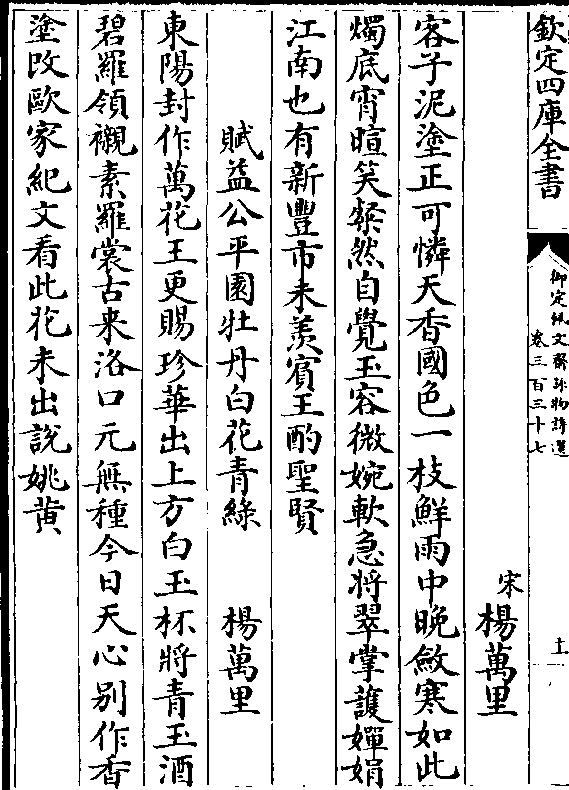 欽定四庫全書
御定佩文齋詠物詩選
卷三百三十七
土
宋楊萬里
客子泥塗正可憐天香國色一枝鮮雨中晚斂寒如此
燭底宵暄笑粲然自覺玉容微婉軟急將翠掌護嬋娟
江南也有新豐市未羨賓王酌聖賢
賦益公平園牡丹白花青緣 楊萬里
東陽封作萬花王更賜珍華出上方白玉杯將青玉酒
碧羅領襯素羅裳古来洛口元無種今日天心别作香
塗改歐家紀文看此花未出說姚黄